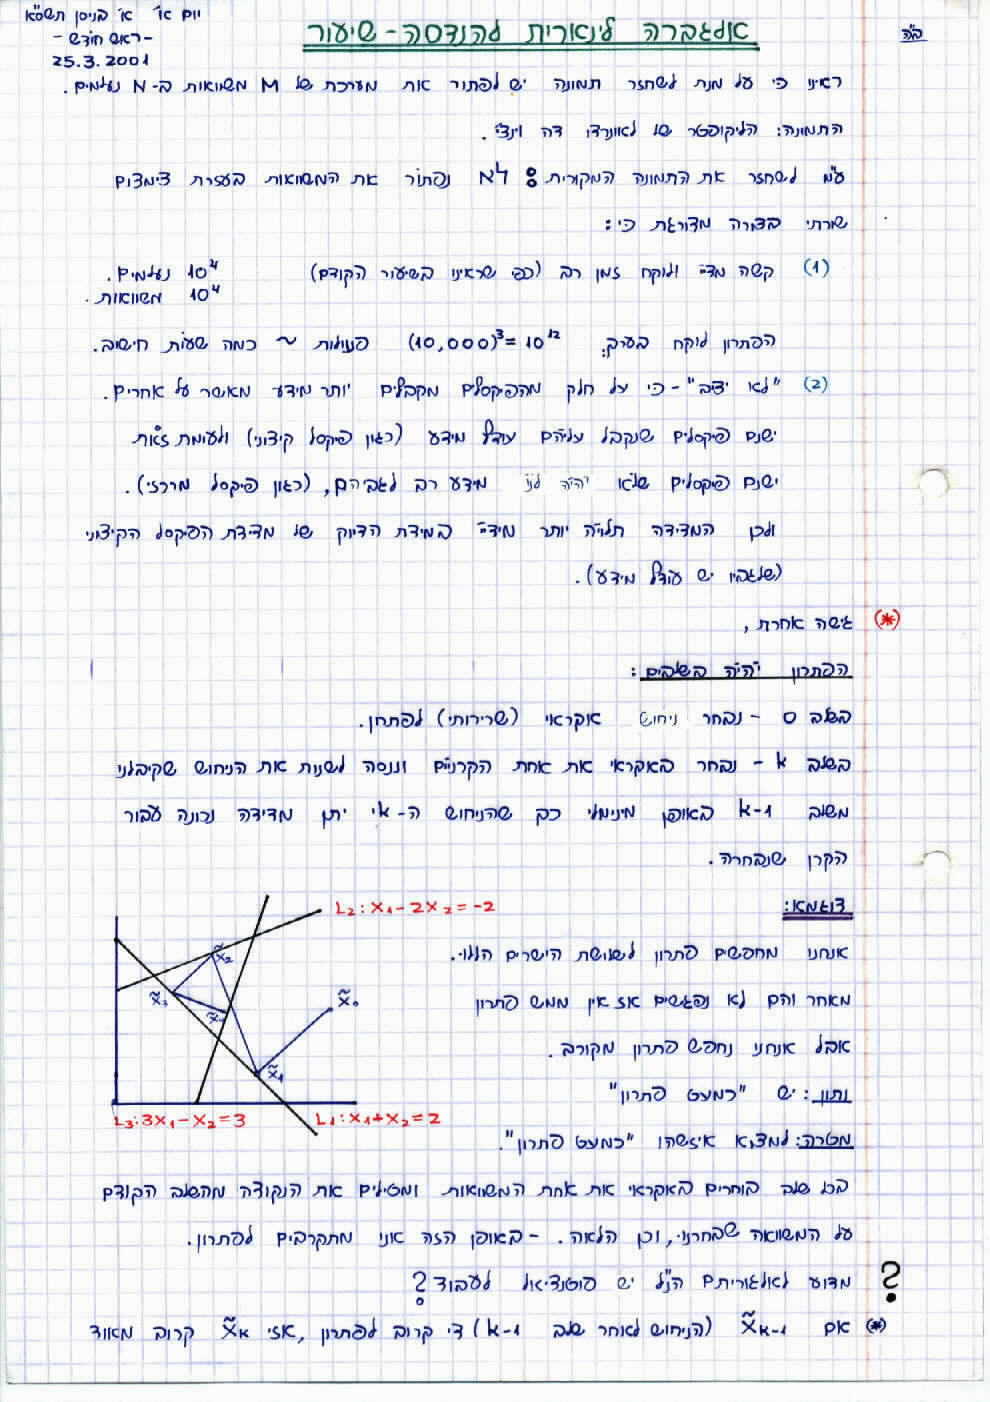 ב"ה
יום א' א' בניסן תשס"א
- ראש חודש -
25.3.2001
אלגברה לינארית להנדסה - שיעור
ראינו כי על מנת לשחזר תמונה יש לפתור את מערכת של M משוואות ב-N נעלמים.
התמונה: הליקופטר של לאונרדו דה וינצ'י.
ע"מ לשחזר את התמונה המקורית: לא נפתור את המשוואות בעזרת צימצום
שורתי בצורה מדורגת כי:
(1) קשה מדי ולוקח זמן רב (כפי שראינו בשיעור הקודם) 10⁴ נעלמים.
10⁴ משוואות.
הפתרון לוקח בערך: (10,000)³=10¹² פעולות ~ כמה שעות חישוב.
(2) "לא יציב" - כי על חלק מהפיקסלים מקבלים יותר מידע מאשר על אחרים.
ישנם פיקסלים שנקבל עליהם עודף מידע (כגון פיקסל קיצוני) ולעומת זאת
ישנם פיקסלים שלא יהיה לנו מידע רב לגביהם, (כגון פיקסל מרכזי).
ולכן המדידה תלויה יותר מידי במידת הדיוק של מדידת הפיקסל הקיצוני
(שלגביו יש עודף מידע).
(*) גישה אחרת,
הפתרון יהיה בשלבים:
בשלב 0 - נבחר ניחוש אקראי (שרירותי) לפתרון.
בשלב k - נבחר באקראי את אחת הקרניים וננסה לשנות את הניחוש שקיבלנו
משלב k-1 באופן מינימלי כך שהניחוש ה-k יתן מדידה נכונה עבור
הקרן שנבחרה.
דוגמא:
L₂: x₁-2x₂=-2
אנחנו מחפשים פתרון לשלושת הישרים הללו.
x̃₂
x̃₃
x̃₀
מאחר והם לא נפגשים אז אין ממש פתרון
אבל אנחנו נחפש פתרון מקורב.
x̃₁
נתון: יש "כמעט פתרון"
L₃: 3x₁-x₂=3
L₁: x₁+x₂=2
מטרה: למצוא איזשהו "כמעט פתרון".
בכל שלב בוחרים באקראי את אחת המשוואות ומטילים את הנקודה מהשלב הקודם
על המשוואה שבחרנו, וכן הלאה. - באופן הזה אני מתקרבים לפתרון.
? מדוע לאלגוריתם הנ"ל יש פוטנציאל לעבוד?
(*) אם x̃ₖ₋₁ (הניחוש לאחר שלב k-1) די קרוב לפתרון, אזי x̃ₖ קרוב מאוד